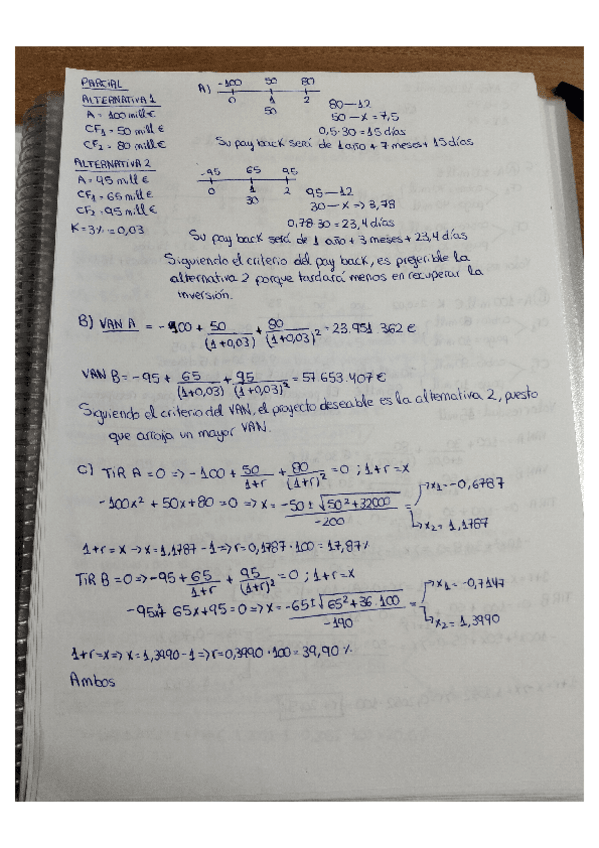 PARCIAL
ALTERNATIVA 1
A = 100 mill €
CF1 = 50 mill €
CF2 = 80 mill €
A) -100 50 80
0 1 2
50
80 — 12
50 — x = 7,5
0,5·30 = 15 días
Su pay back será de 1 año + 7 meses + 15 días
ALTERNATIVA 2
A = 95 mill €
CF1 = 65 mill €
CF2 = 95 mill €
K = 3% = 0,03
-95 65 95
0 1 2
30
95 — 12
30 — x => 3,78
0,78·30 = 23,4 días
Su pay back será de 1 año + 3 meses + 23,4 días
Siguiendo el criterio del pay back, es preferible la
alternativa 2 porque tardará menos en recuperar la
inversión.
B) VAN A = -100 + 50/(1+0,03) + 80/(1+0,03)² = 23.951 362 €
VAN B = -95 + 65/(1+0,03) + 95/(1+0,03)² = 57 653.407 €
Siguiendo el criterio del VAN, el proyecto deseable es la alternativa 2, puesto
que arroja un mayor VAN.
C) TIR A = 0 => -100 + 50/1+r + 80/(1+r)² = 0 ; 1+r = x
-100x² + 50x + 80 = 0 => x = -50 ± √50² + 32000/-200 = x1 = -0,6787
x2 = 1,1787
1+r = x → x = 1,1787 - 1 => r = 0,1787·100 = 17,87%
TIR B = 0 => -95 + 65/1+r + 95/(1+r)² = 0 ; 1+r = x
-95x² + 65x + 95 = 0 => x = -65 ± √65² + 36.100/-190 = x1 = -0,7147
x2 = 1,3990
1+r = x => x = 1,3990 - 1 => r = 0,3990·100 = 39,90%
Ambos